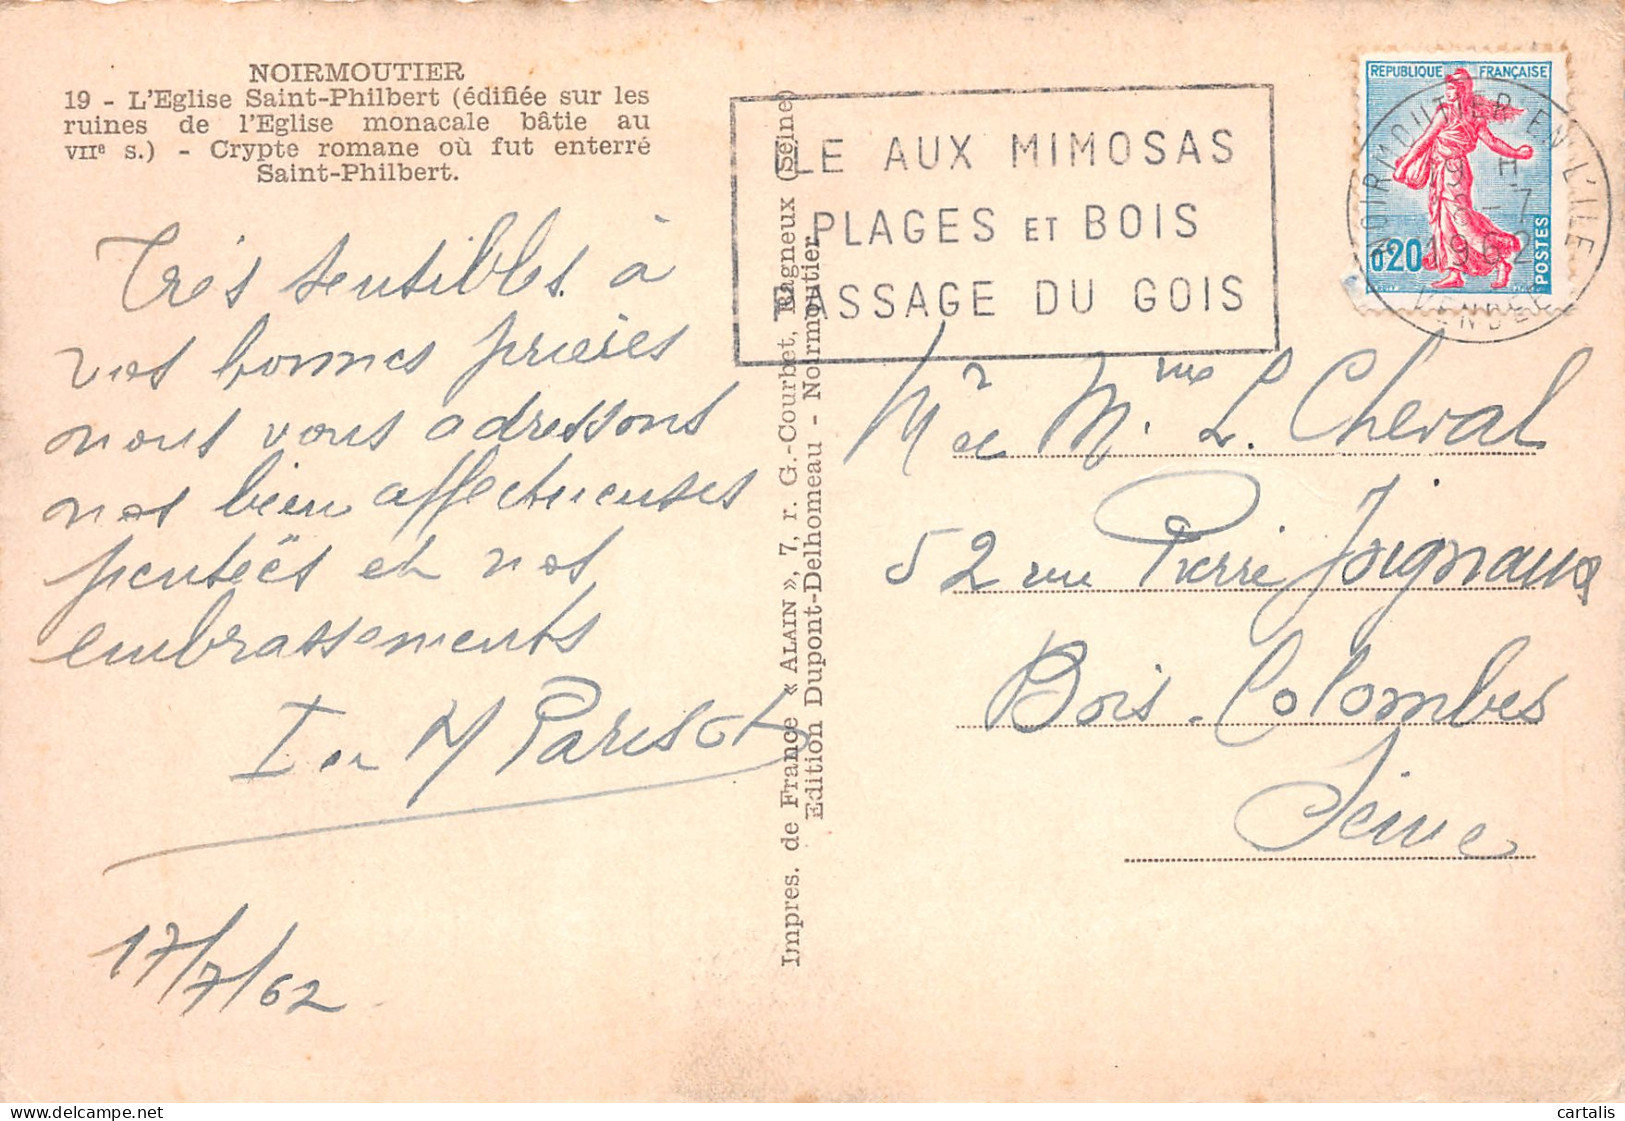 NOIRMOUTIER
19 - L'Eglise Saint-Philbert (édifiée sur les
ruines de l'Eglise monacale bâtie au
VIIe s.) - Crypte romane où fut enterré
Saint-Philbert.
Très sensibles à
vos bonnes prières
nous vous adressons
nos bien affectueuses
pensées et nos
embrassements
Parisot
17/7/62
Impres. de France « ALAIN », 7, r. G.-Courbet, Bagneux (Seine)
Edition Dupont-Delhomeau - Noirmoutier
LE AUX MIMOSAS
PLAGES ET BOIS
PASSAGE DU GOIS
REPUBLIQUE FRANÇAISE
0,20
POSTES
NOIRMOUTIER EN L'ILE
19 H
-7
1962
VENDEE
Mr et Mme L. Cheval
52 rue Pierre Joigneaux
Bois-Colombes
Seine
cartalis